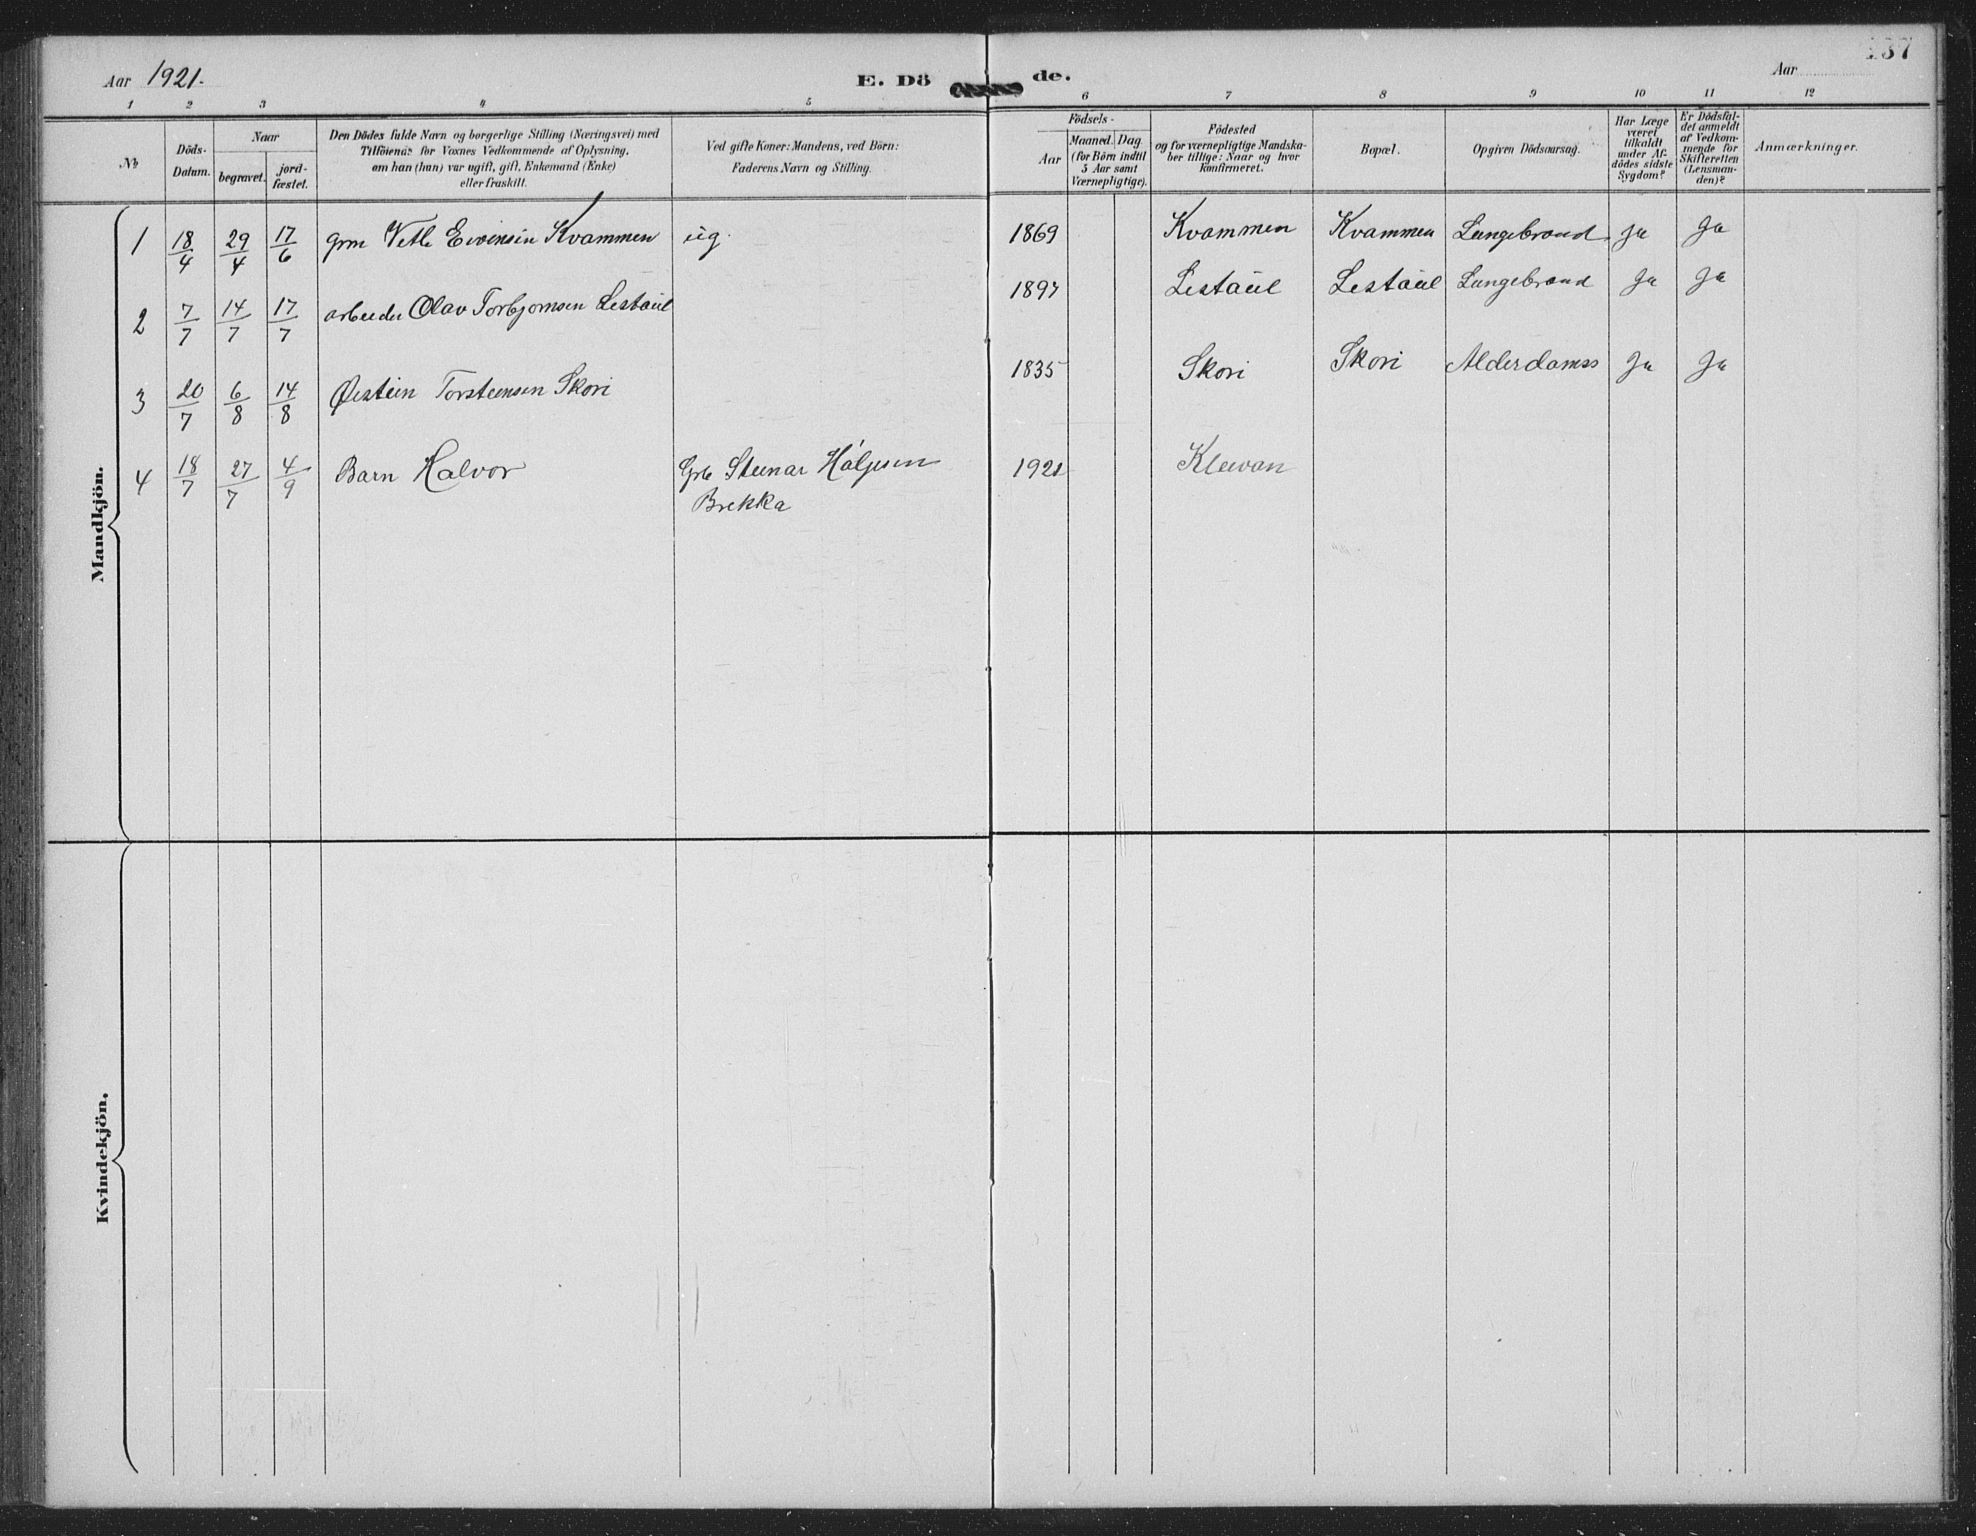 137
Aar 1921.
E. Döde.
Aar
1 2 3 4 5 6 7 8 9 10 11 12
No
Döds-
Datum.
Naar
begravet.
jord-
fæstet.
Den Dödes fulde Navn og borgerlige Stilling (Næringsvei) med
Tilföiende for Voxnes Vedkommende af Oplysning,
om han (hun) var ugift, gift, Enkemand (Enke)
eller fraskilt.
Ved gifte Koner: Mandens, ved Börn:
Faderens Navn og Stilling.
Födsels-
Aar
Maaned. Dag.
(for Börn indtil
5 Aar samt
Værnepligtige).
Födested
og for værnepligtige Mandska-
ber tillige: Naar og hvor
konfirmeret.
Bopæl.
Opgiven Dödsaarsag.
Har Læge
været
tilkaldt
under Af-
dödes sidste
Sygdom?
Er Dödsfal-
det anmeldt
af Vedkom-
mende for
Skifteretten
(Lensman-
den)?
Anmærkninger.
Mandkjön.
1 18/4 29/4 17/6 grm Vetle Eivensen Kvammen ug. 1869 Kvammen Kvammen Lungebrand Ja Ja
2 7/7 14/7 17/7 arbeider Olav Torbjornsen Lestaul 1897 Lestaul Lestaul Lungebrand Ja Ja
3 20/7 6/8 14/8 Øistein Torsteinsen Skori 1835 Skori Skori Alderdomss Ja Ja
4 18/7 27/7 4/9 Barn Halvor Grb Steinar Høljesen 1921 Kleivan
Brekka
Kvindekjön.